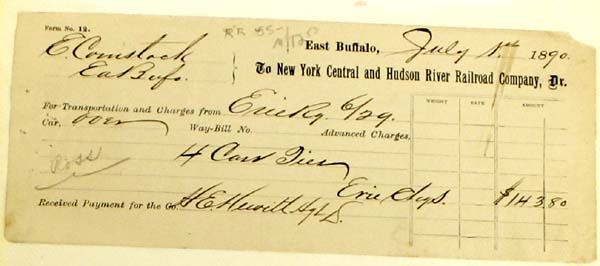 Form No. 12.
RR 55-
East Buffalo, July 1st 1890.
E. Comstock
Ea Bufo.
To New York Central and Hudson River Railroad Company, Dr.
WEIGHT RATE AMOUNT
For Transportation and Charges from Erie Ry. 6/29.
Car, over Way-Bill No. Advanced Charges,
4 Cars Ties
Ross
Erie Chgs. $143.80
Received Payment for the Co. H E Hewitt Agt